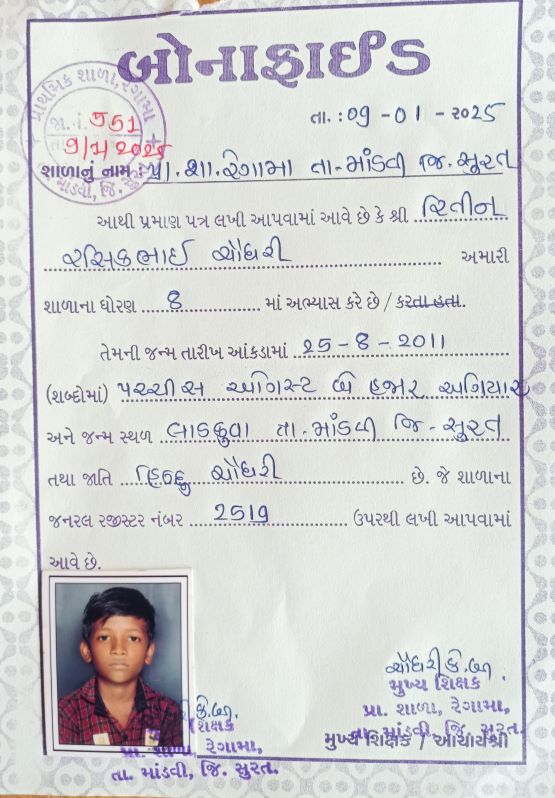 બોનાફાઈડ
પ્રાથમિક શાળા, રેગામા
જા. નં. 551
તા. 9/1/2025
માંડવી, જિ.
તા. : 09 - 01 - ૨૦૨૫
શાળાનું નામ : પ્રા. શા. રેગામા તા- માંડવી જિ. સુરત
આથી પ્રમાણ પત્ર લખી આપવામાં આવે છે કે શ્રી રિતીન
રસિકભાઈ ચૌધરી અમારી
શાળાના ધોરણ 8 માં અભ્યાસ કરે છે / કરતા હતા.
તેમની જન્મ તારીખ આંકડામાં 25 - 8 - 2011
(શબ્દોમાં) પચ્ચીસ ઓગિસ્ટ બે હજાર અગિયાર
અને જન્મ સ્થળ લાડકુવા તા- માંડવી જિ - સુરત
તથા જાતિ હિન્દુ ચૌધરી છે. જે શાળાના
જનરલ રજીસ્ટર નંબર 2519 ઉપરથી લખી આપવામાં
આવે છે.
ચૌધરી કે.
મુખ્ય શિક્ષક
પ્રા. શાળા, રેગામા,
તા. માંડવી, જિ. સુરત.
મુખ્ય શિક્ષક / આચાર્યશ્રી
શિક્ષક
પ્રા. શાળા, રેગામા,
તા. માંડવી, જિ. સુરત.